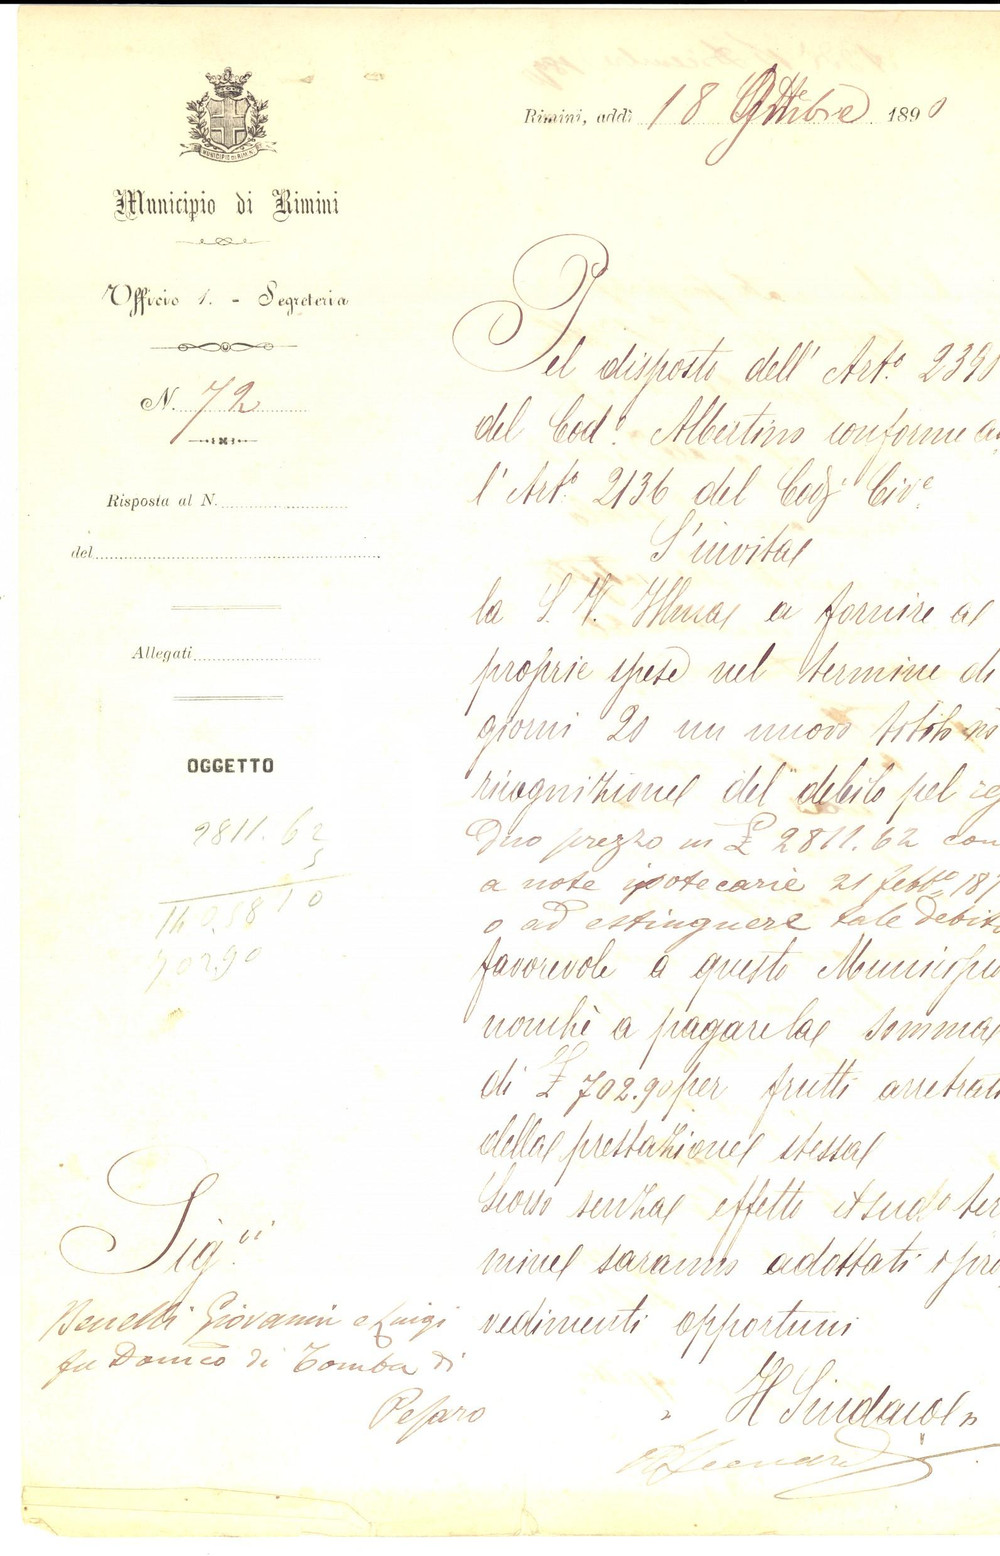 Rimini, addì 18 Ottobre 1890
MUNICIPIO DI RIMINI
Municipio di Rimini
Ufficio 1. - Segreteria
N. 72
Risposta al N.
del
Allegati
OGGETTO
2811.62
5
140.58 10
702.90
Sig.ri
Benelli Giovanni e Luigi
fu Domco di Tomba di
Pesaro
Pel disposto dell' Art.o 2390
del Cod.e Albertino conforme a
l' Art.o 2136 del Cod.e Civ.e
S'invita
la S. V. Illma a fornire a
proprie spese nel termine di
giorni 20 un nuovo titolo
ricognizione del debito pel
prezzo in £ 2811.62 con
a note ipotecarie 21 febb.o 187
o ad estinguere tale debito
favorevole a questo Municipio
nonchè a pagare la somma
di £ 702.90 per frutti arretrati
della prestazione stessa
Scorso senza effetto d.o ter
mine saranno adottati i pro
vedimenti opportuni
Il Sindaco